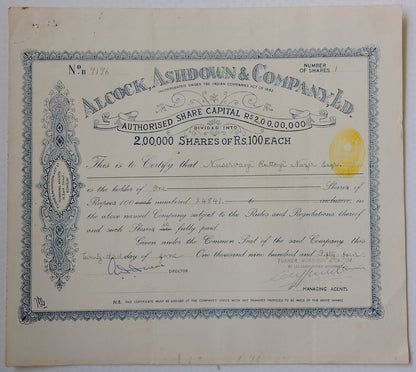 No. n 7196
NUMBER OF SHARES 1
ALCOCK, ASHDOWN & COMPANY, LD.
INCORPORATED UNDER THE INDIAN COMPANIES ACT OF 1882
AUTHORISED SHARE CAPITAL RS 2,00,00,000
DIVIDED INTO
2,00,000 SHARES OF RS. 100 EACH
This is to Certify that Nusserwanji Ruttonji
is the holder of One Shares of
Rupees 100 each numbered 24841 to inclusive in
the above named Company subject to the Rules and Regulations thereof
and such Shares is fully paid.
Given under the Common Seal of the said Company this
Twenty third day of June One thousand nine hundred and Fifty four
TURNER MORRISON & CO. LTD.
DIRECTOR
MANAGING AGENTS
N.B. THIS CERTIFICATE MUST BE LODGED AT THE COMPANY'S OFFICE WITH ANY TRANSFER PROPOSED TO BE MADE OF THE ABOVE SHARES